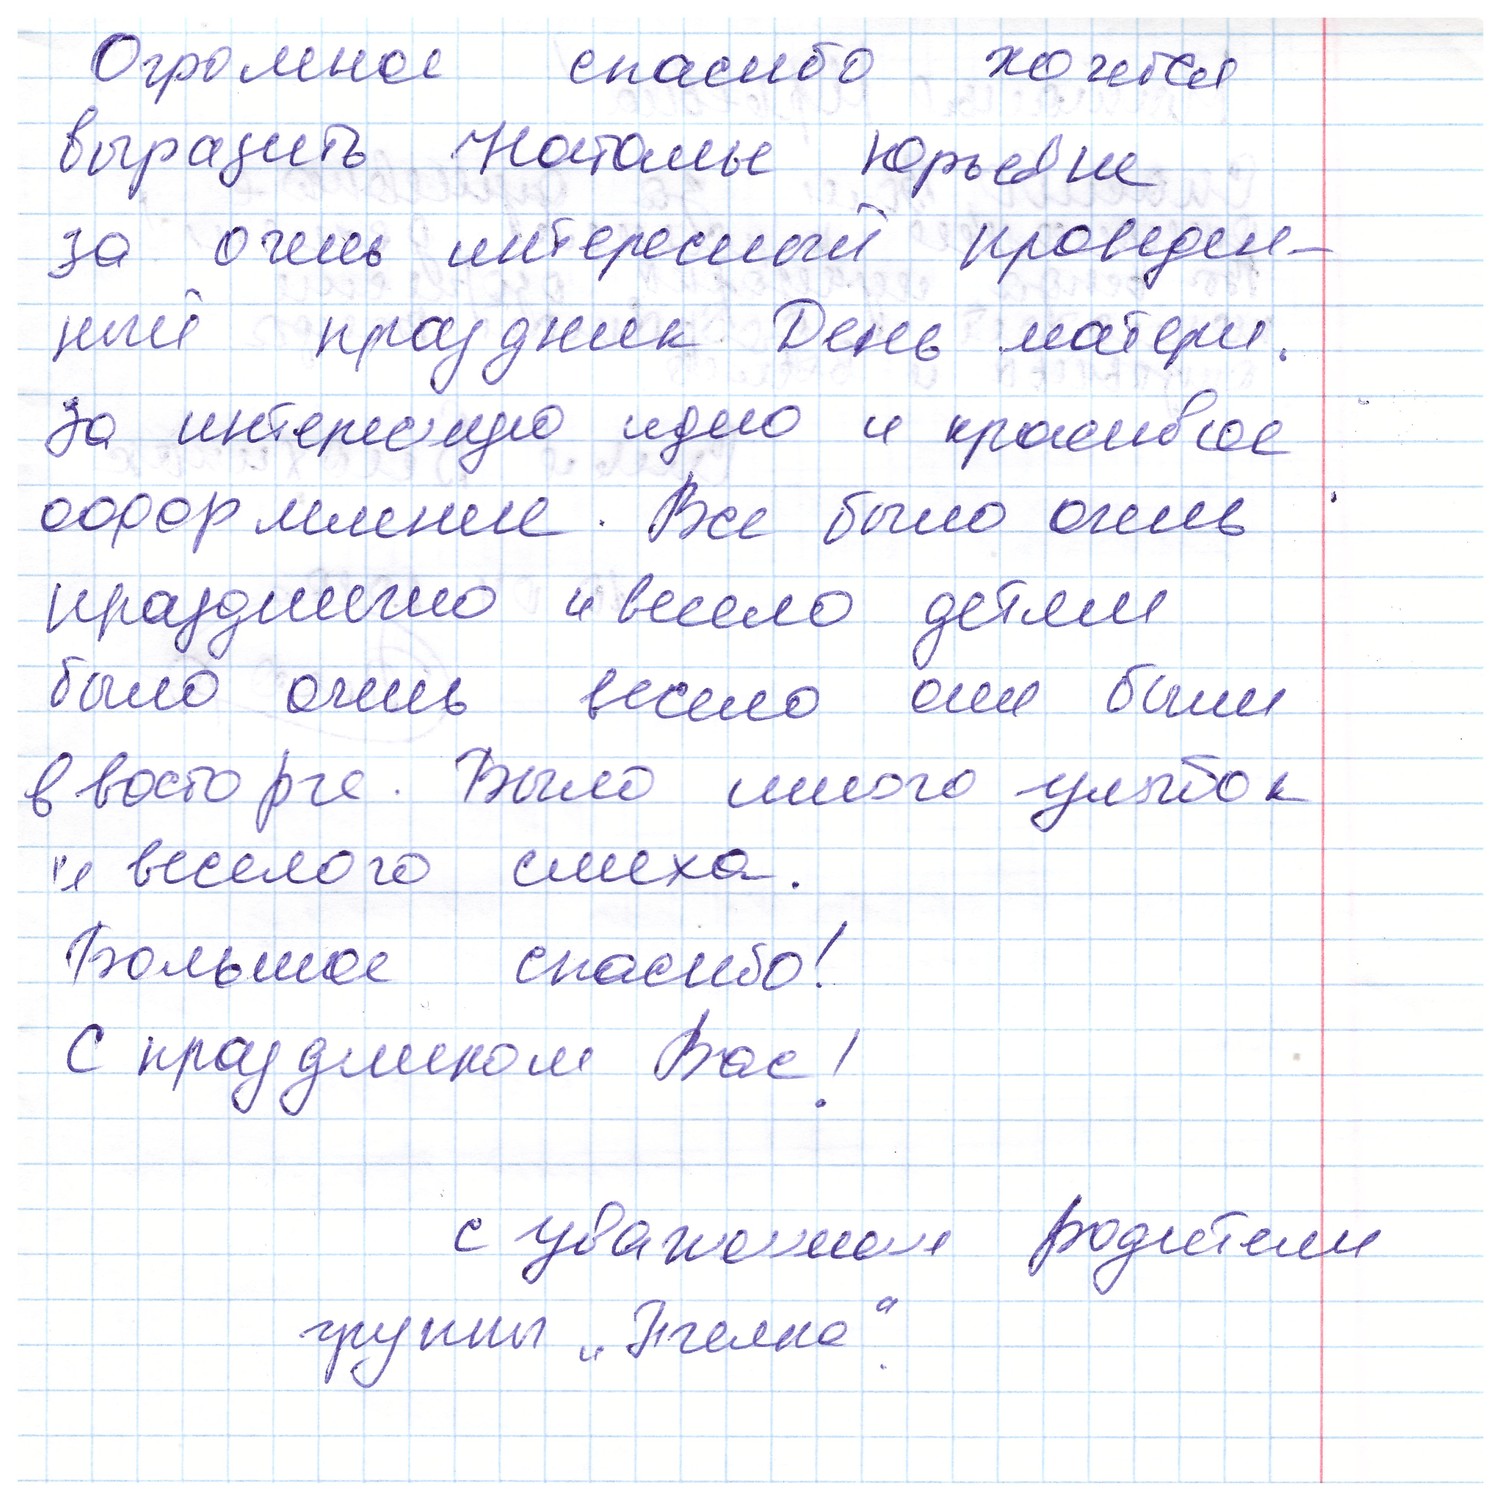 Огромное спасибо хочется
выразить Наталье Юрьевне
за очень интересный проведен-
ный праздник День матери.
За интересную идею и красивое
оформление. Все было очень
празднично и весело детям
было очень весело они были
в восторге. Было много улыбок
и веселого смеха.
Большое спасибо!
С праздником Вас!
с уважением родители
группы „Пчелка“.